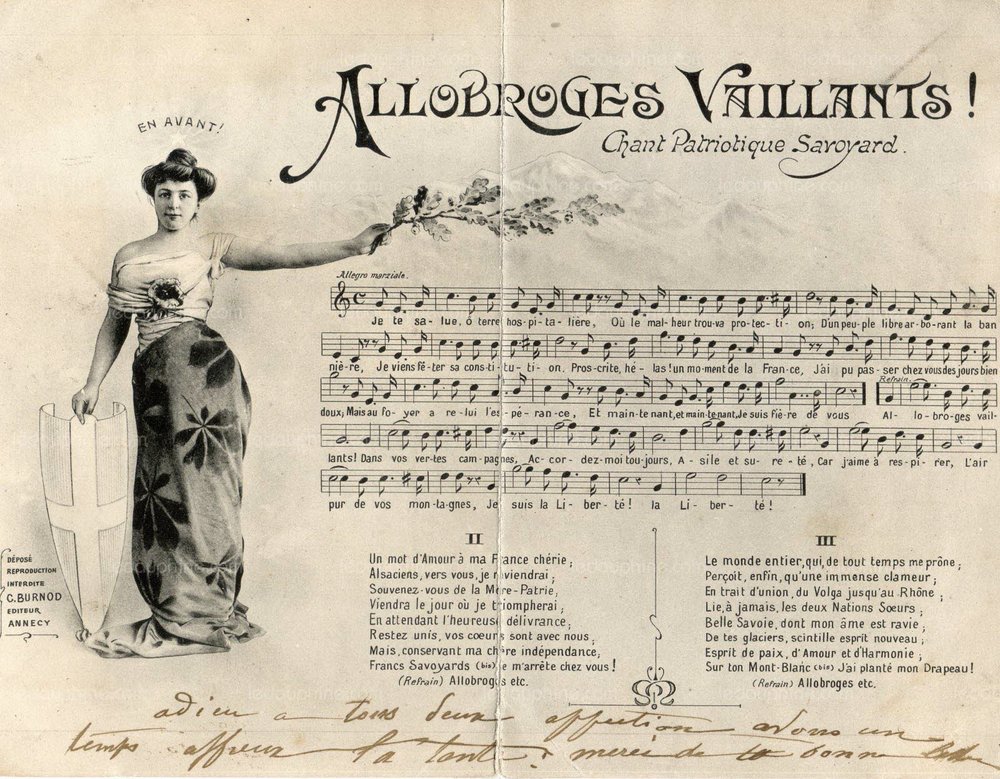 ALLOBROGES VAILLANTS !
Chant Patriotique Savoyard.
EN AVANT!
Allegro marziale.
Je te sa-lue, ô terre hos-pi-ta-lière, Où le mal-heur trou-va pro-tec-ti-on; D'un peu-ple libre ar-bo-rant la ban
niè-re, Je viens fê-ter sa cons-ti-tu-ti-on. Pros-crite, hé-las! un mo-ment de la Fran-ce, J'ai pu pas-ser chez vous des jours bien
Refrain.
doux; Mais au fo-yer a re-lui l'es-pé-ran-ce, Et main-te nant, et main-te-nant, Je suis fiè-re de vous Al-lo-bro-ges vail-
lants! Dans vos ver-tes cam-pagnes, Ac-cor-dez-moi tou-jours, A-sile et su-re-té, Car j'aime à res-pi-rer, L'air
pur de vos mon-tagnes, Je suis la Li-ber-té! la Li-ber-té!
II
Un mot d'Amour à ma France chérie;
Alsaciens, vers vous, je reviendrai;
Souvenez-vous de la Mère-Patrie,
Viendra le jour où je triompherai;
En attendant l'heureuse délivrance,
Restez unis, vos cœurs sont avec nous;
Mais, conservant ma chère indépendance,
Francs Savoyards (bis) je m'arrête chez vous!
(Refrain) Allobroges etc.
III
Le monde entier, qui, de tout temps me prône;
Perçoit, enfin, qu'une immense clameur;
En trait d'union, du Volga jusqu'au Rhône;
Lie, à jamais, les deux Nations Sœurs;
Belle Savoie, dont mon âme est ravie;
De tes glaciers, scintille esprit nouveau;
Esprit de paix, d'Amour et d'Harmonie;
Sur ton Mont-Blanc (bis) J'ai planté mon Drapeau!
(Refrain) Allobroges etc.
DÉPOSÉ
REPRODUCTION
INTERDITE
C. BURNOD
EDITEUR
ANNECY
adieu a tous deux affection avons un
temps affreux la tante merci de ta bonne